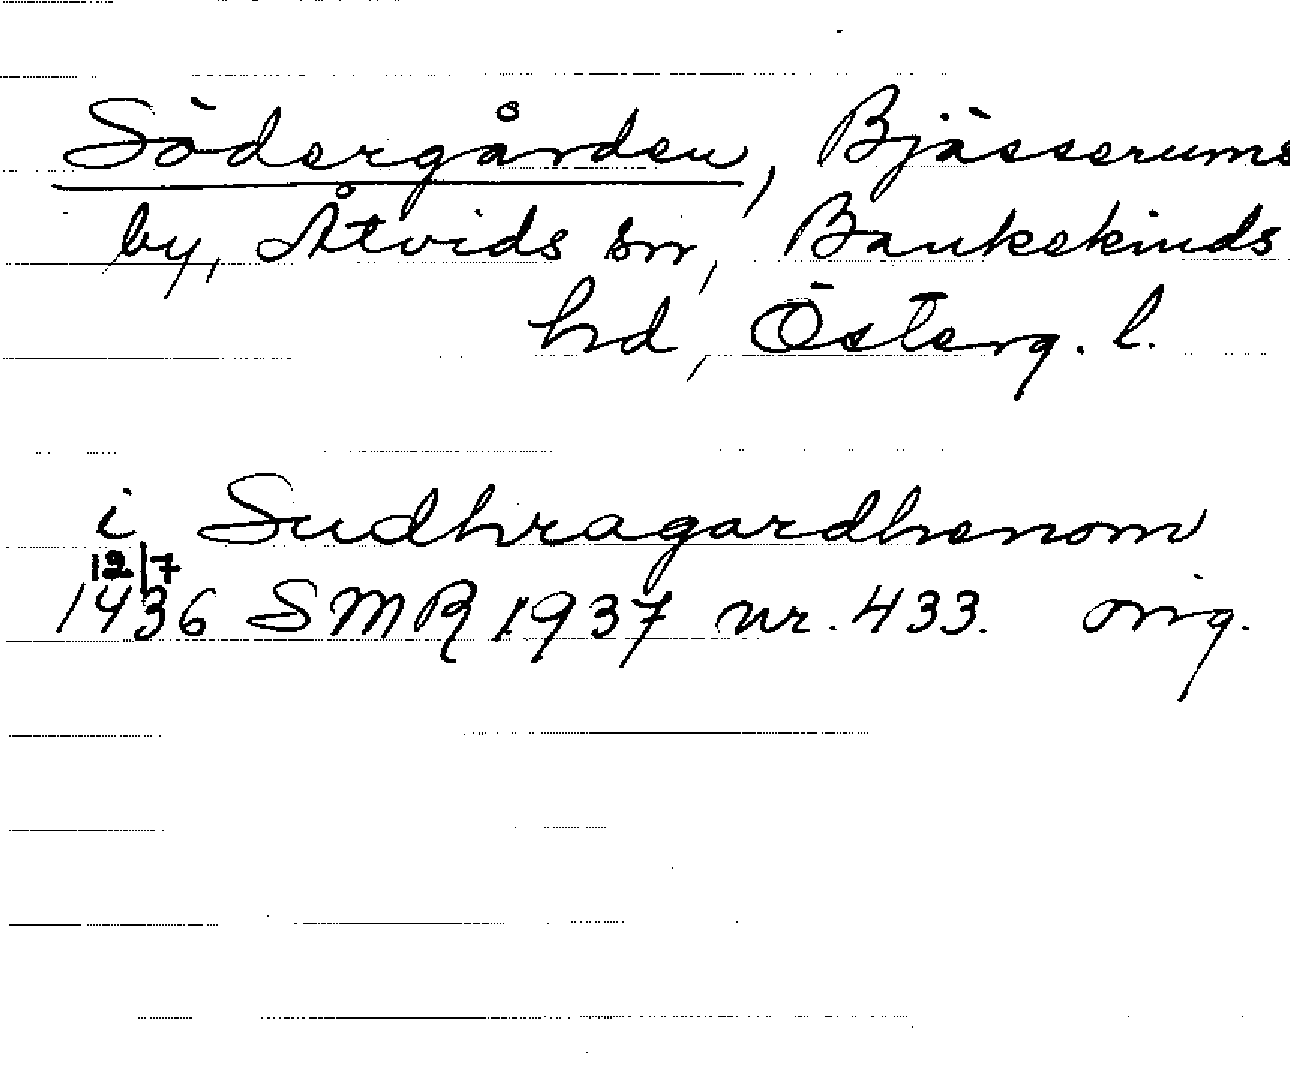 Södergården, Bjässerums
by, Åtvids sn, Bankekinds
hd, Österg. l.
i Sudhragardhenom
12/7
1436 SMR 1937 nr. 433. orig.